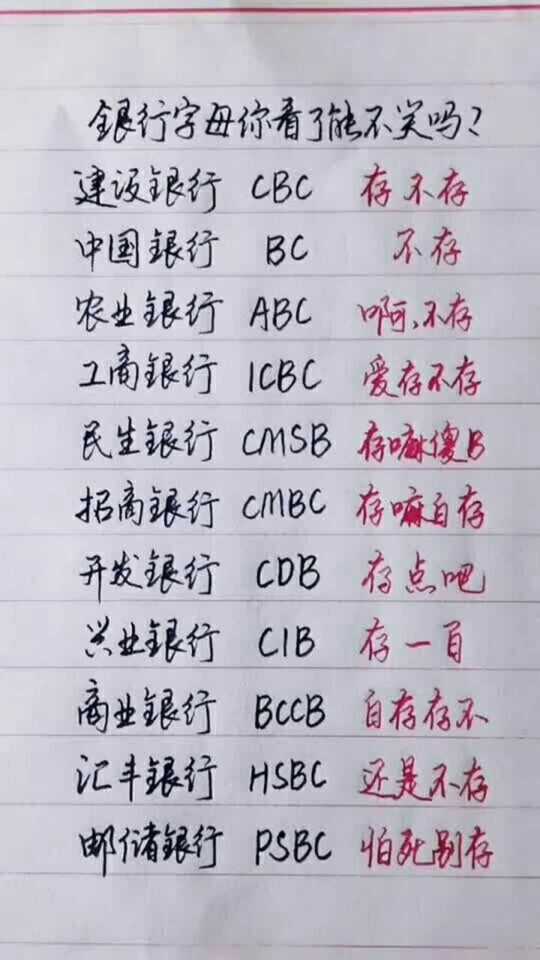 银行字母你看了能不笑吗?
建设银行 CBC 存不存
中国银行 BC 不存
农业银行 ABC 啊,不存
工商银行 ICBC 爱存不存
民生银行 CMSB 存嘛傻B
招商银行 CMBC 存嘛白存
开发银行 CDB 存点吧
兴业银行 CIB 存一百
商业银行 BCCB 白存存不
汇丰银行 HSBC 还是不存
邮储银行 PSBC 怕死别存